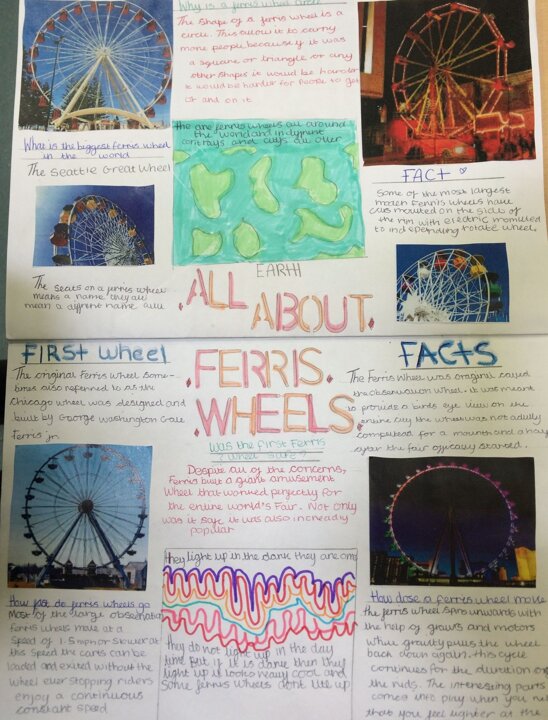 Why is a ferris wheel circle
The shape of a ferris wheel is a
circle. This allow it to carry
more people because if it was
a square or triangle or any
other shape it would be harder
it would be harder for people to get
of and on it
What is the biggest ferris wheel
in the world
The Seattle Great Wheel
The seats on a ferris wheel
means a name they are
mean a diffrent name
The are ferris wheels all around
the world and in diffrent
contrays and citys all over
EARTH
FACT
Some of the most largest
modern Ferris wheels have
cars mounted on the side of
the rim with electric
to independing rotate wheel.
ALL ABOUT
FERRIS
WHEELS
FIRST Wheel
The original Ferris Wheel some-
times also referred to as the
Chicago wheel was designed and
built by George Washington Gale
Ferris jr.
Was the first Ferris
Wheel safe?
Despite all of the concerns,
Ferris built a giant amusement
Wheel that worked perfectly for
the entire world's Fair. Not only
was it safe it was also increadly
popular
FACTS
The Ferris Wheel was called
the observation Wheel. It was meant
to provide a birds eye view on the
entire city the wheel was not
for a mounth and a half
after the fair started.
How fast do ferris wheels go
Most of the large observation
ferris wheels move at a
speed of 1.5 mph or slower at
this speed the carts can be
loaded and exited without the
wheel ever stopping riders
enjoy a continuous
constant speed
they light up in the dark they are
they do not light up in the day
time but if it is dark then they
light up it looks really cool and
some ferris wheels dont lite up
How dose a ferris wheel move
the ferris wheel spins upwards with
the help of gears and motors
while gravity pulls the wheel
back down again. this cycle
continues for the duration of
the rids. The interesting parts
comes into play when you
that you feel lighter at the